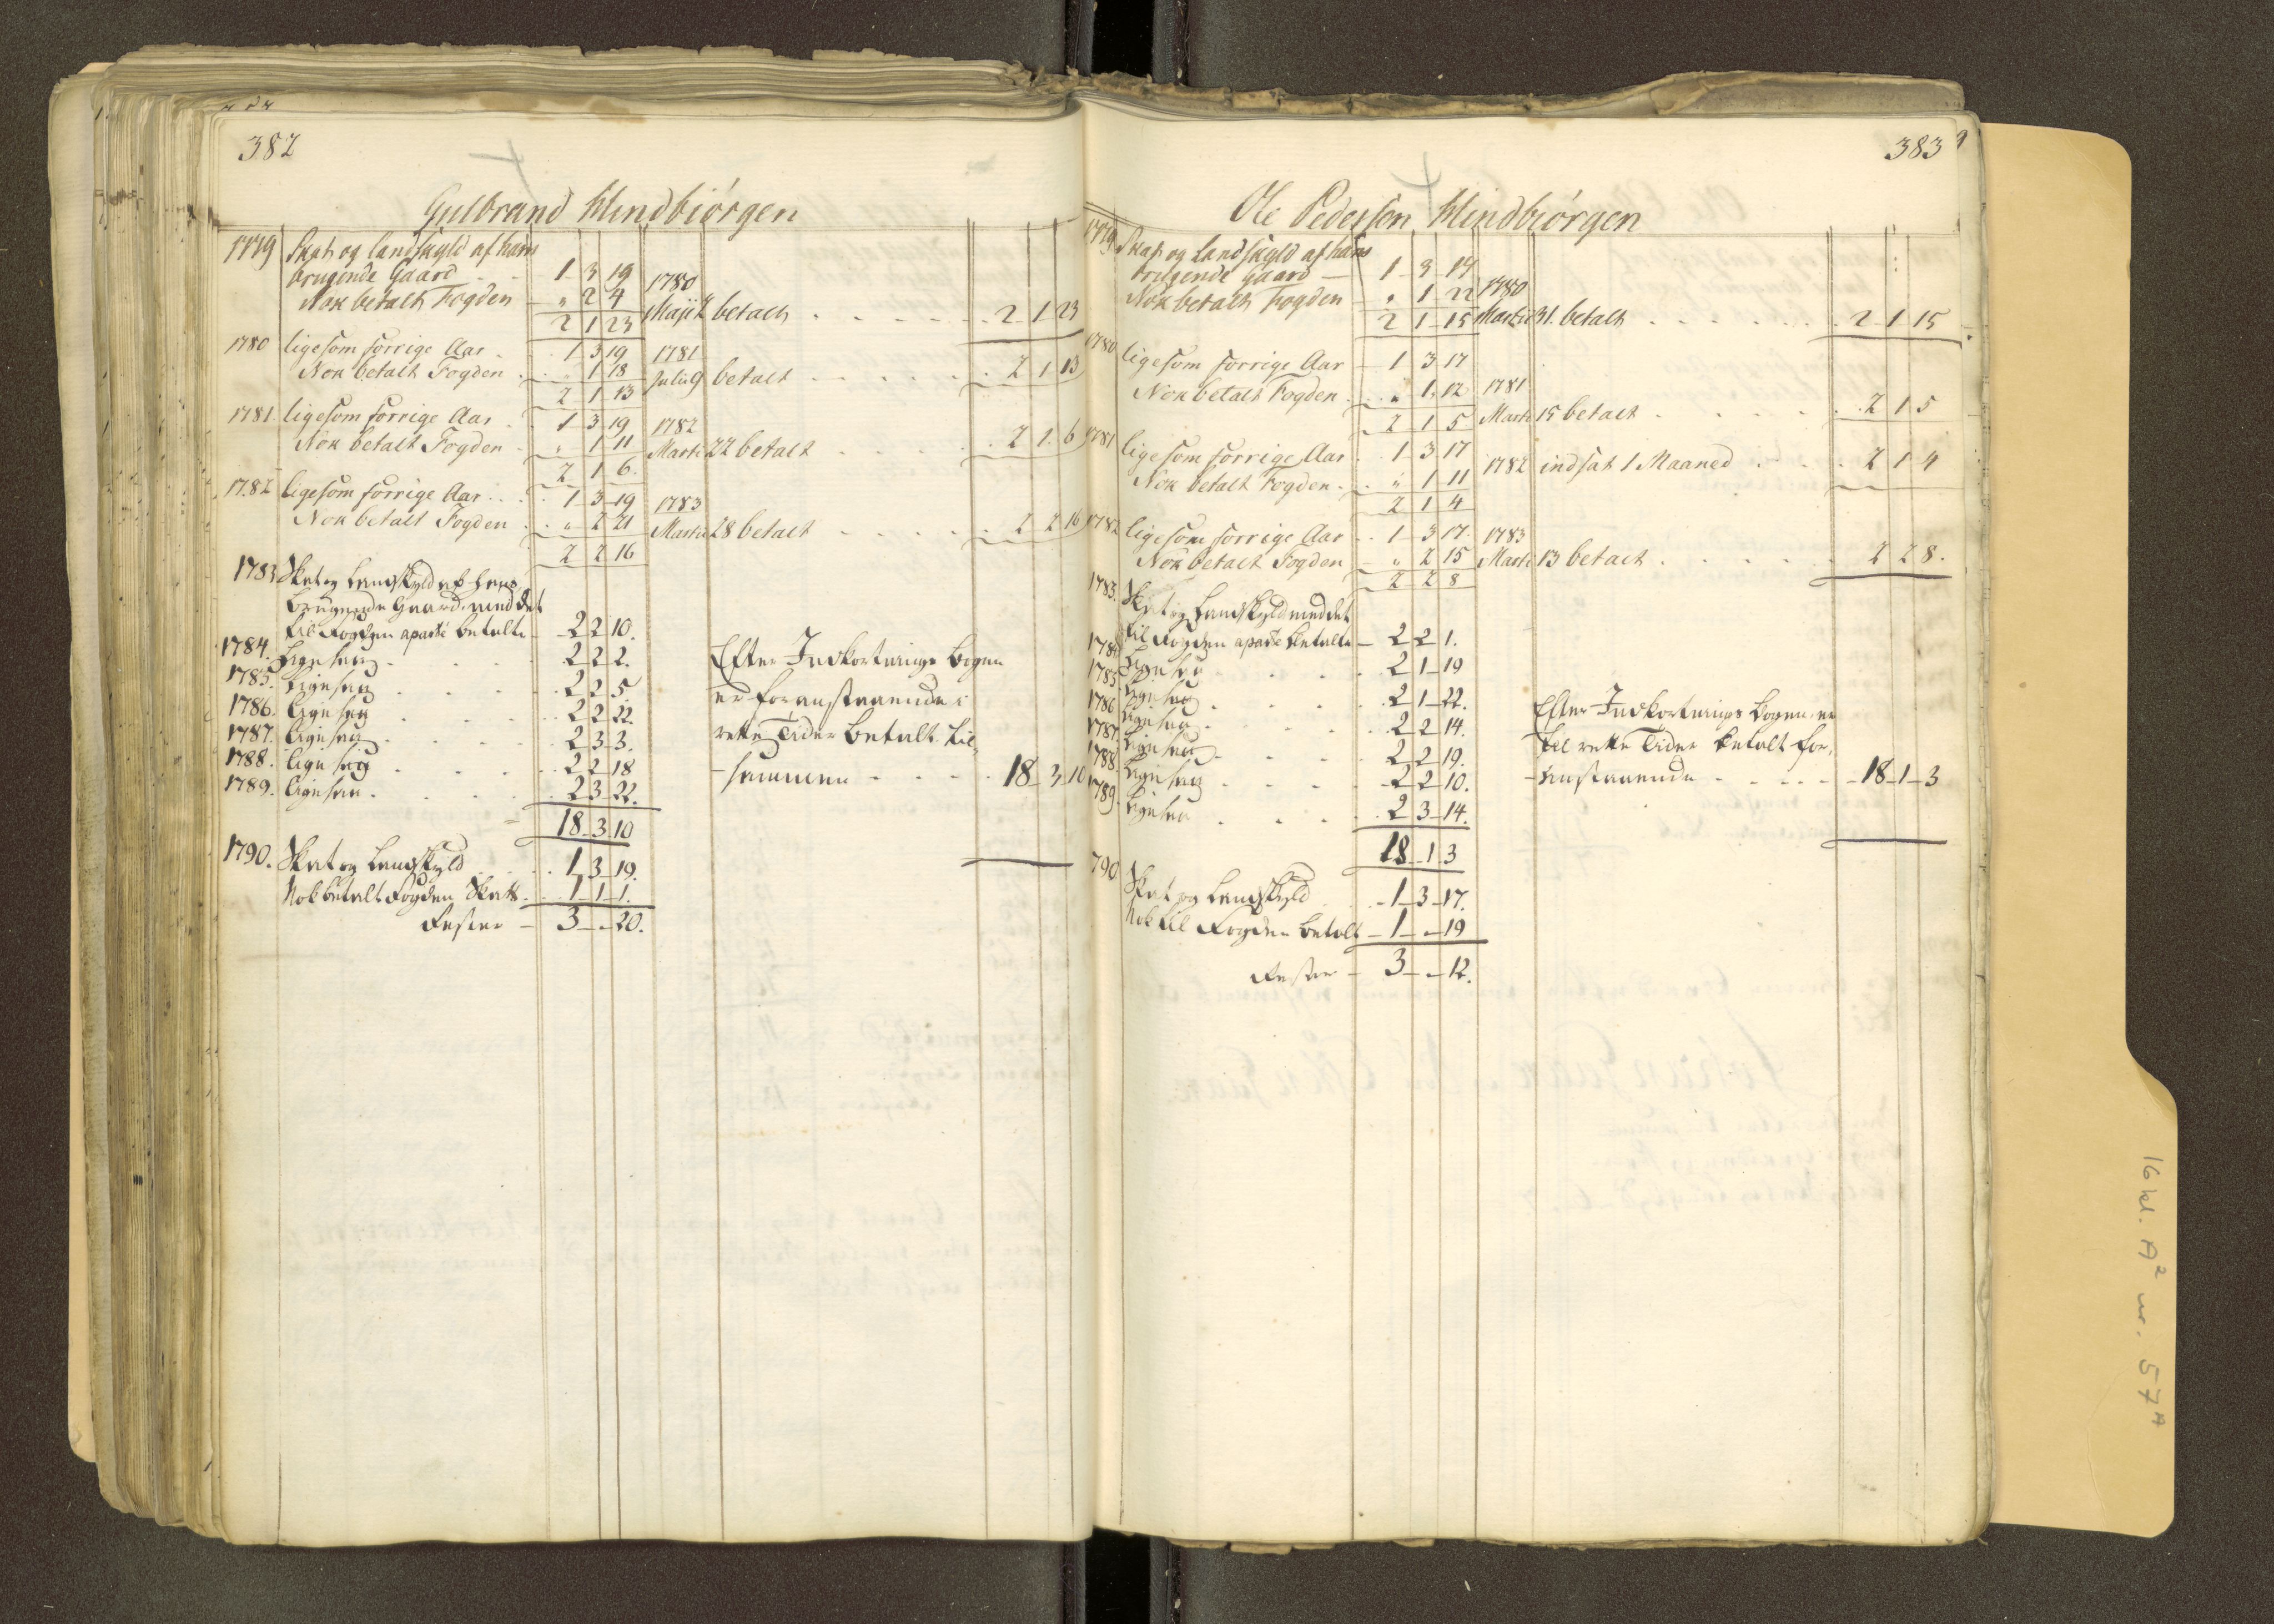 382
Gulbrand Klindbiórgen
1779 Skat og Landskyld af hans
brugende Gaard - - 1 3 19 1780
Nok betalt Fogden - „ 2 4 Maji 2 betalt . . . . . 2 1 23
2 1 23
1780 ligesom forrige Aar . . 1 3 19 1781
Nok betalt Fogden . . „ 1 18 Julii 9 betalt . . . . . 2 1 13
2 1 13
1781. ligesom forrige Aar . . 1 3 19 1782
Nok betalt Fogden . „ 1 11 Martii 22 betalt . . . . . 2 1 6
2 1 6.
1782 ligesom forrige Aar . . . 1 3 19 1783
Nok betalt Fogden . . „ 2 21 Martii 28 betalt . . . . . 2 2 16
2 2 16
1783 Skat og Landskyld af hans
brugende Gaard, med det
til Fogden aparte betalte - 2 2 10.
1784. Ligesaa - . . . 2 2 2. Efter Indkortnings Bogen
1785. Ligesaa . . . . 2 2 5. er foranstaaende i
1786. Ligesaa . . . . 2 2 22. rette Tider betalt til
1787. Ligesaa . . . . 2 3 3. sammen - - - - 18 3 10
1788. Ligesaa . . . . 2 2 18
1789. Ligesaa . . . . 2 3 22.
18 3 10
1790. Skat og Landskyld . . 1 3 19.
Nok betalt Fogden Skatt . . 1 1 1.
Rester - 3 - „ 20.
383
Ole Pedersen Klindbiórgen
1779 Skat og Landskyld af hans
brugende Gaard - 1 3 17
Nok betalt Fogden - „ 1 22 1780
2 1 15 Martii 31. betalt . . . . . . 2 1 15
1780 ligesom forrige Aar - 1 3 17
Nok betalt Fogden . . „ 1 12 1781
2 1 5 Martii 15 betalt . . . . . . 2 1 5
1781 ligesom forrige Aar . 1 3 17
Nok betalt Fogden . . „ 1 11 1782 indsat 1 Maaned . . . . 2 1 4
2 1 4
1782 ligesom forrige Aar . . 1 3 17. 1783
Nok betalt Fogden - „ 2 15 Martii 13 betalt . . . . . 2 2 8.
2 2 8
1783. Skat og Landskyld med det
til Fogden aparte betalte - 2 2 1.
1784 Ligesaa . . . . 2 1 19
1785 Ligesaa . . . . 2 1 22. Efter Indkortnings Bogen er
1786 Ligesaa . . . . 2 2 14. til rette Tider betalt for,
1787. Ligesaa . . . . 2 2 19. anstaaende - - - - 18 1 3
1788. Ligesaa . . . . 2 2 10.
1789. Ligesaa . . . . 2 3 14.
18 1 3
790 Skat og Landskyld . . 1 3 17.
Nok til Fogden betalt - 1 - „ 19
Rester - 3 - „ 12.
16 kl. A² nr. 57ᴬ